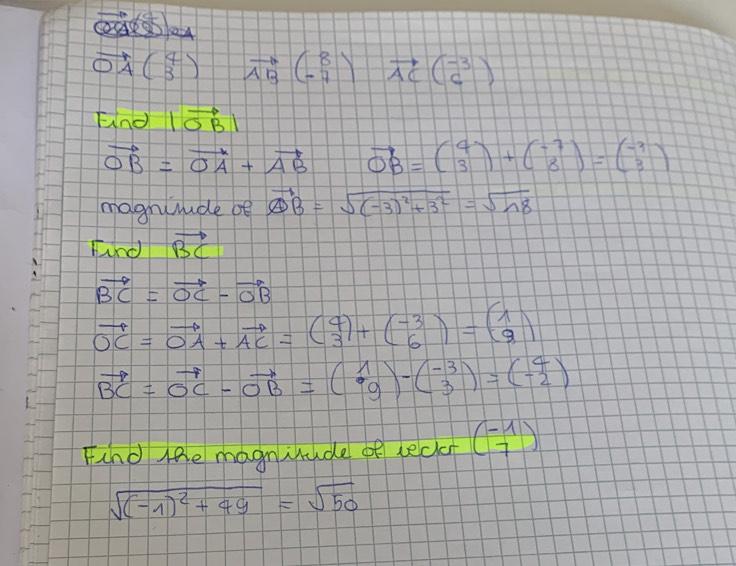 OA (4 3) AB (8 -7) AC (-3 6)
Find |OB|
OB = OA + AB OB = (4 3) + (-7 8) = (-3 3)
magnitude of OB = √(-3)²+3² = √18
Find BC
BC = OC - OB
OC = OA + AC = (4 3) + (-3 6) = (1 9)
BC = OC - OB = (1 9) - (-3 3) = (4 -2)
Find the magnitude of vector (-1 7)
√(-1)² + 49 = √50